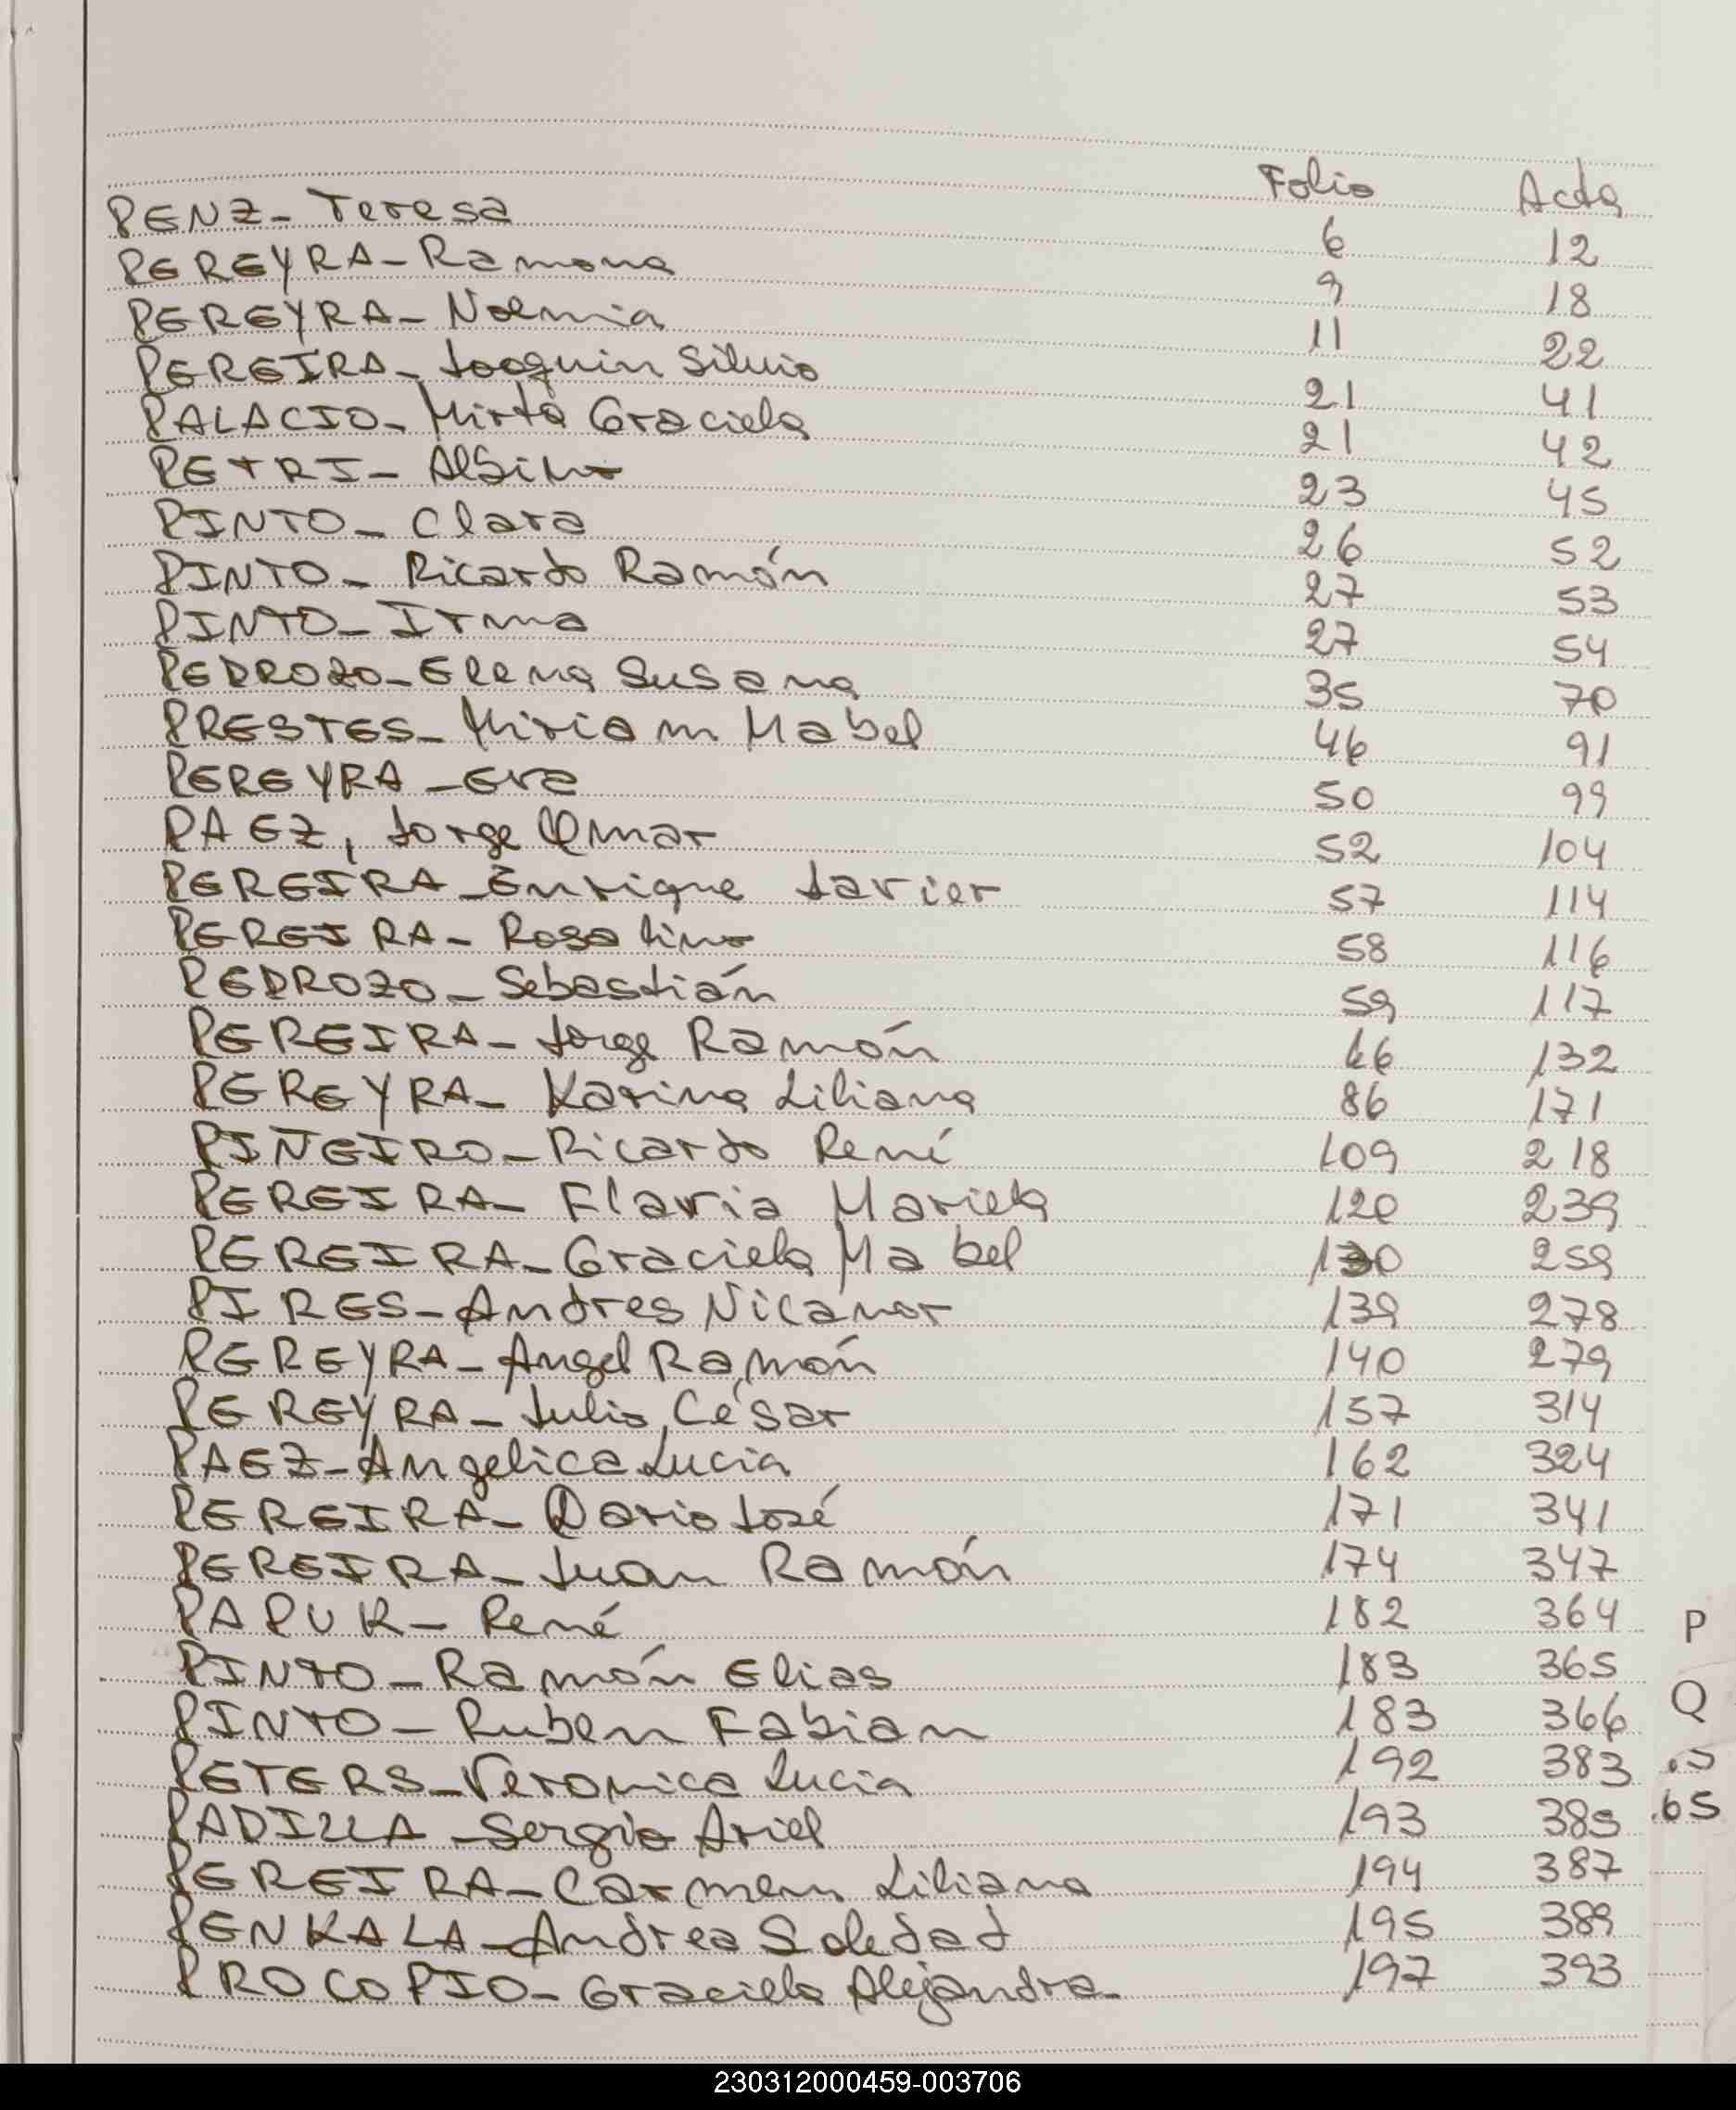 Folio Acta
PENZ- Teresa 6 12
PEREYRA- Ramona 9 18
PEREYRA- Noemia 11 22
PEREIRA- Joaquin Silvio 21 41
PALACIO- Mirta Graciela 21 42
PETRI- Albino 23 45
PINTO- Clara 26 52
PINTO- Ricardo Ramón 27 53
PINTO- Irma 27 54
PEDROZO- Elena Susana 35 70
PRESTES- Miriam Mabel 46 91
PEREYRA- Eva 50 99
PAEZ, Jorge Omar 52 104
PEREIRA- Enrique Javier 57 114
PEREIRA- Rosalino 58 116
PEDROZO- Sebastián 59 117
PEREIRA- Jorge Ramón 66 132
PEREYRA- Karina Liliana 86 171
PIÑEIRO- Ricardo René 109 218
PEREIRA- Flavia Mariela 120 239
PEREIRA- Graciela Mabel 130 259
PIRES- Andres Nicanor 139 278
PEREYRA- Angel Ramón 140 279
PEREYRA- Julio César 157 314
PAEZ- Angelica Lucia 162 324
PEREIRA- Dario José 171 341
PEREIRA- Juan Ramón 174 347
PAPUK- René 182 364
PINTO- Ramón Elias 183 365
PINTO- Ruben Fabian 183 366
PETERS- Veronica Lucia 192 383
PADILLA- Sergio Ariel 193 385
PEREIRA- Carmen Liliana 194 387
PENKALA- Andrea Soledad 195 389
PROCOPIO- Graciela Alejandra- 197 393
P
Q
65
230312000459-003706